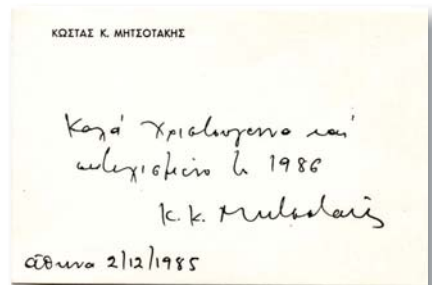 ΚΩΣΤΑΣ Κ. ΜΗΤΣΟΤΑΚΗΣ
Καλά Χριστούγεννα και
ευτυχισμένο το 1986
Κ. Κ. Μητσοτάκης
Αθήνα 2/12/1985